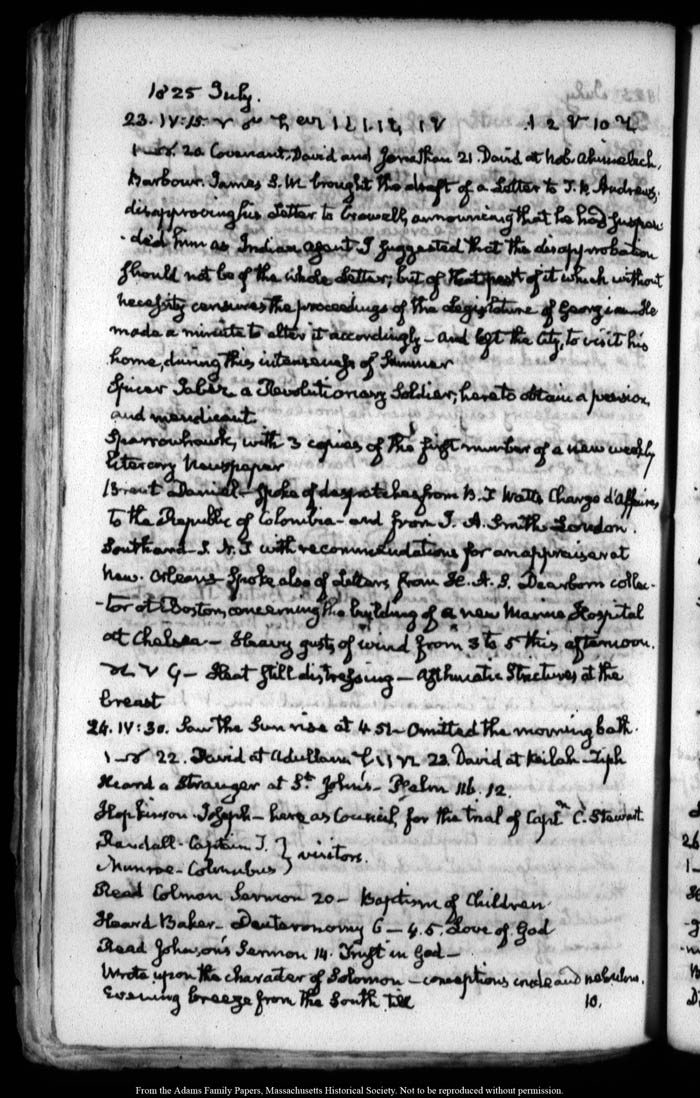 1825 July.
23. IV:15.
20. Covenant, David and Jonathan 21. David at Nob. Ahimelech.
Barbour. James S.W. brought the draft of a Letter to T. P. Andrews,
disapproving his Letter to Crowell, announcing that he had suspen-
-ded him as Indian agent I suggested that the disapprobation
should not be of the whole Letter, but of that part of it which without
necessity censures the proceedings of the Legislature of Georgia — He
made a minute to alter it accordingly — and left the City, to visit his
home, during this intenseness of Summer
Spicer a Revolutionary Soldier, here to obtain a pension,
and mendicant.
Sparrowhawk, with 3 copies of the first number of a new weekly
literary Newspaper
Brent Daniel — Spoke of despatches from B. T. Watts Chargé d'Affaires,
to the Republic of Colombia — and from J. A. Smith London.
Southard — S. N. D with recommendations for an appraiser at
New-Orleans Spoke also of Letters from H. A. S. Dearborn collec-
-tor at Boston, concerning the building of a new Marine Hospital
at Chelsea — Heavy gusts of wind from 3 to 5 this afternoon.
Heat still distressing — Asthmatic Strictures at the
breast
24. IV:30. Saw the Sun rise at 4.51 — Omitted the morning bath.
22. David at Adullam 23. David at Keilah — Ziph
Heard a Stranger at St. John's — Psalm 116. 12.
Hopkinson Joseph — here as Council, for the trial of Captn. C. Stewart.
Randall — Captain T. } visitors.
Munroe — Columbus }
Read Colman Sermon 20 — Baptism of Children
Heard Baker — Deuteronomy 6 — 4.5. Love of God
Read Johnson's Sermon 14. Trust in God —
Wrote upon the character of Solomon — conceptions crude and nebulous.
Evening breeze from the South till 10.
From the Adams Family Papers, Massachusetts Historical Society. Not to be reproduced without permission.